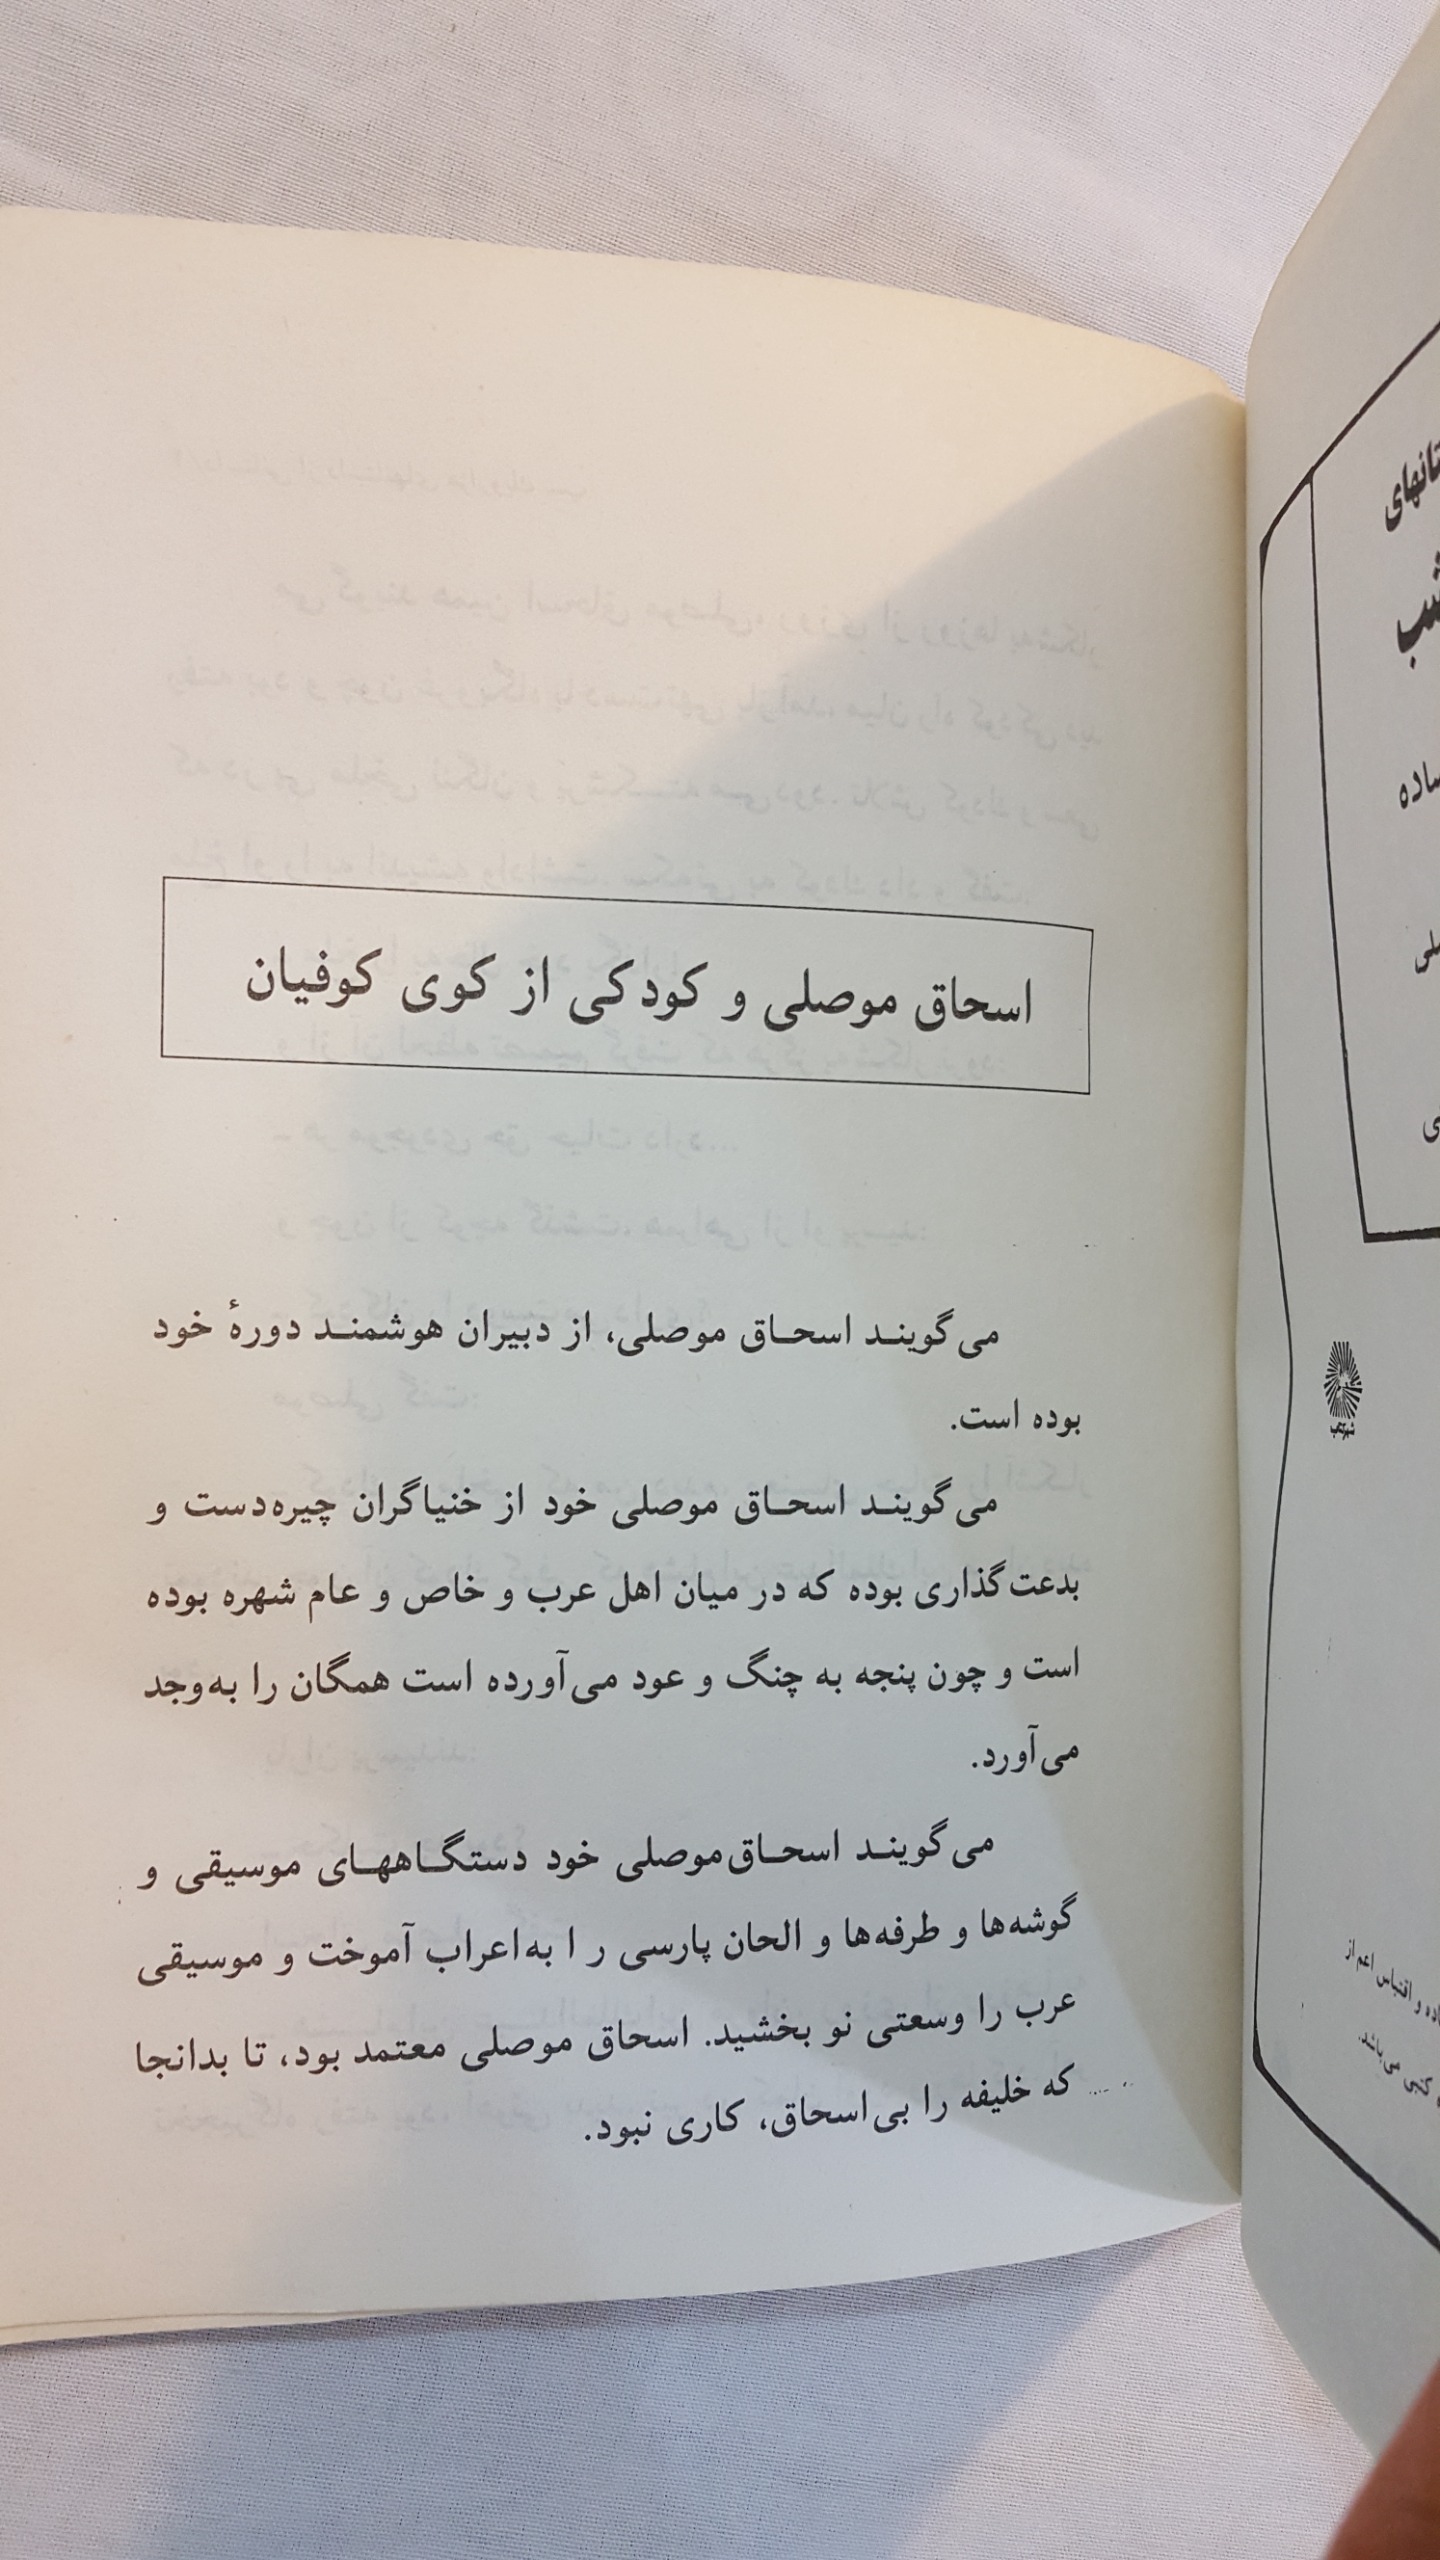 اسحاق موصلی و کودکی از کوی کوفیان
می‌گویند اسحاق موصلی، از دبیران هوشمند دورهٔ خود
بوده است.
می‌گویند اسحاق موصلی خود از خنیاگران چیره‌دست و
بدعت‌گذاری بوده که در میان اهل عرب و خاص و عام شهره بوده
است و چون پنجه به چنگ و عود می‌آورده است همگان را به‌وجد
می‌آورد.
می‌گویند اسحاق‌موصلی خود دستگاههای موسیقی و
گوشه‌ها و طرفه‌ها و الحان پارسی ر ا به‌اعراب آموخت و موسیقی
عرب را وسعتی نو بخشید. اسحاق موصلی معتمد بود، تا بدانجا
که خلیفه را بی‌اسحاق، کاری نبود.
و اقتباس اعم از
کتبی می‌باشد.